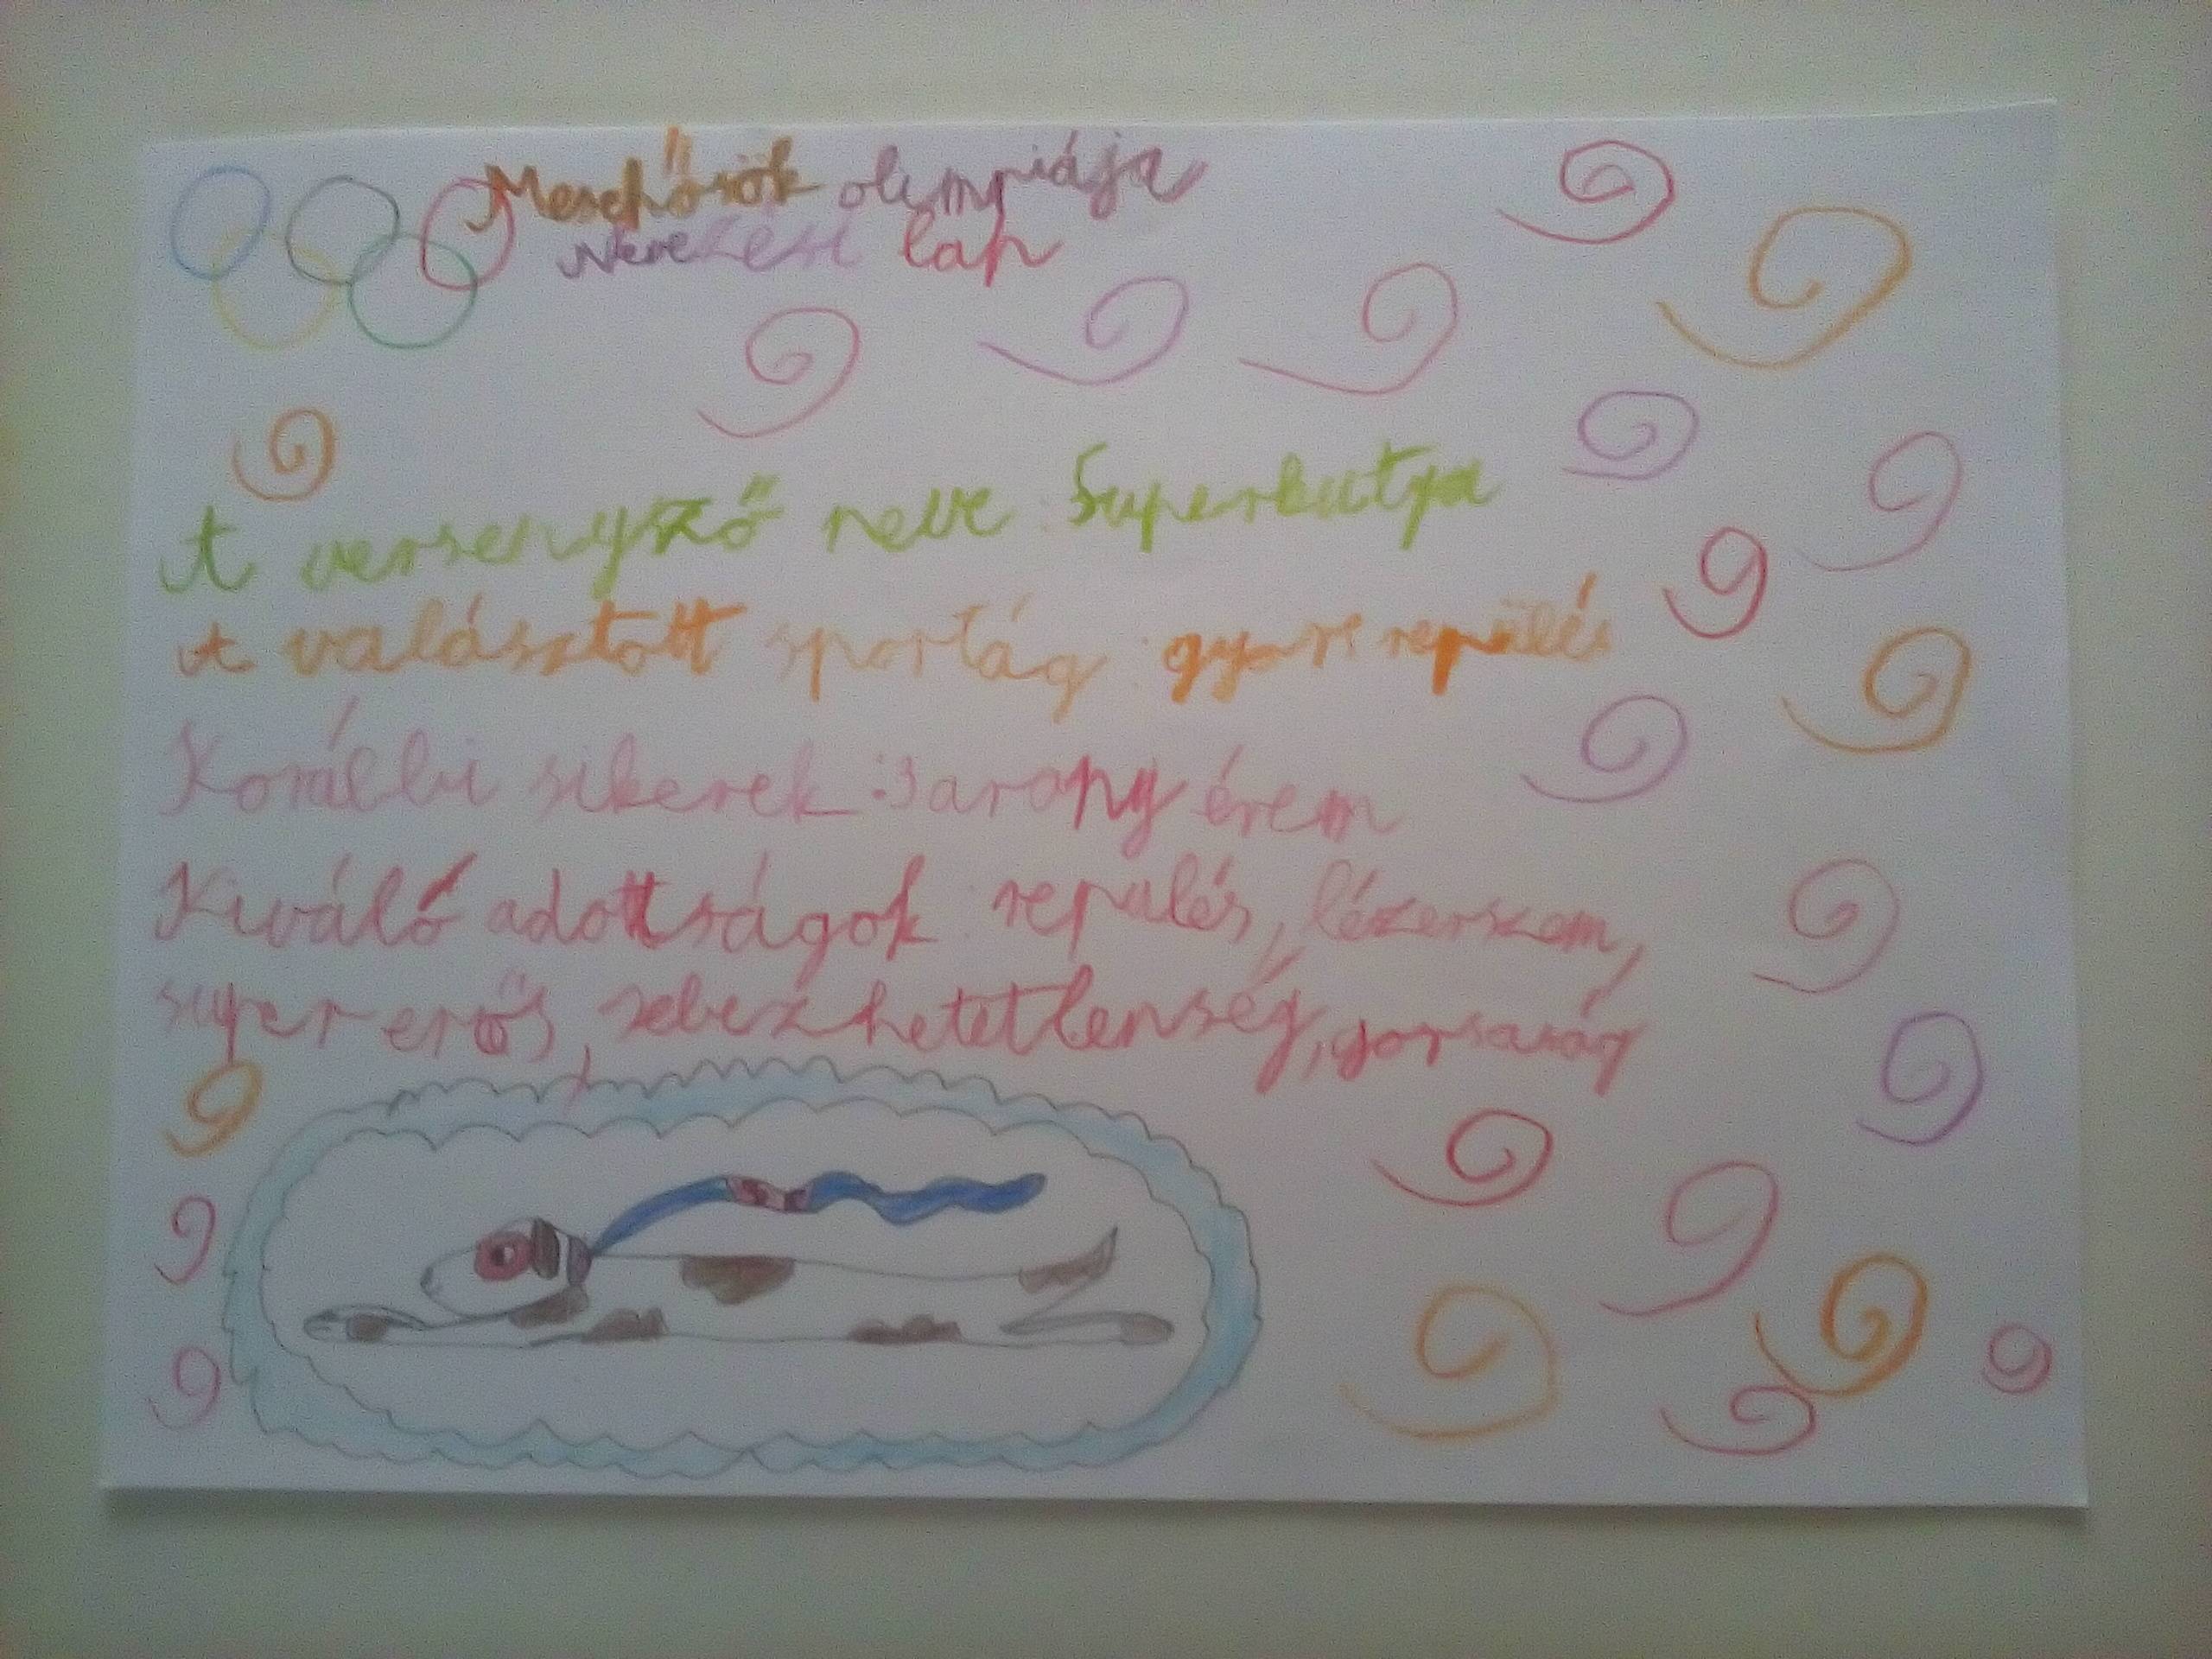 Mesehősök olimpiája
Nevezési lap
A versenyző neve: Superkutya
A választott sportág: gyors repülés
Korábbi sikerek: 3 arany érem
Kiváló adottságok: repülés, lézerszem,
super erős, sebezhetetlenség, gorsaság